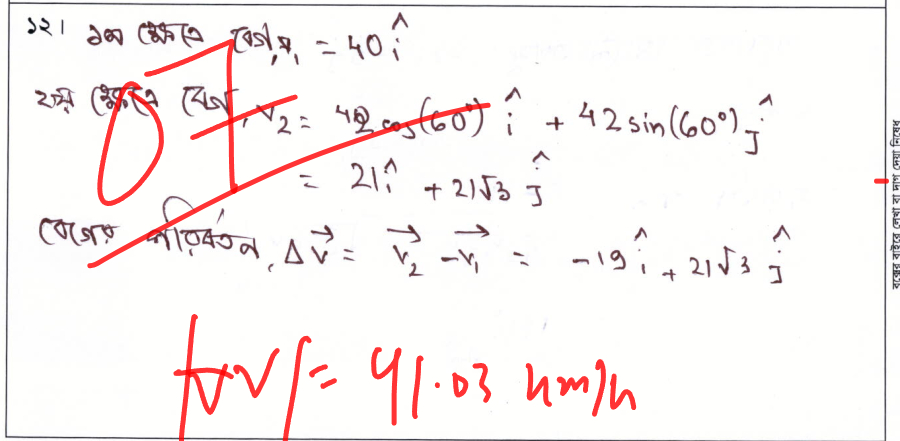 ১২। ১ম ক্ষেত্রে বেগ, v₁ = 40 î
২য় ক্ষেত্রে বেগ, v₂ = 42 cos(60°) î + 42 sin(60°) ĵ
= 21 î + 21√3 ĵ
বেগের পরিবর্তন, Δv⃗ = v⃗₂ - v⃗₁ = -19 î + 21√3 ĵ
07
|ΔV| = 41.03 km/h
বক্সের বাইরে লেখা বা দাগ দেয়া নিষেধ